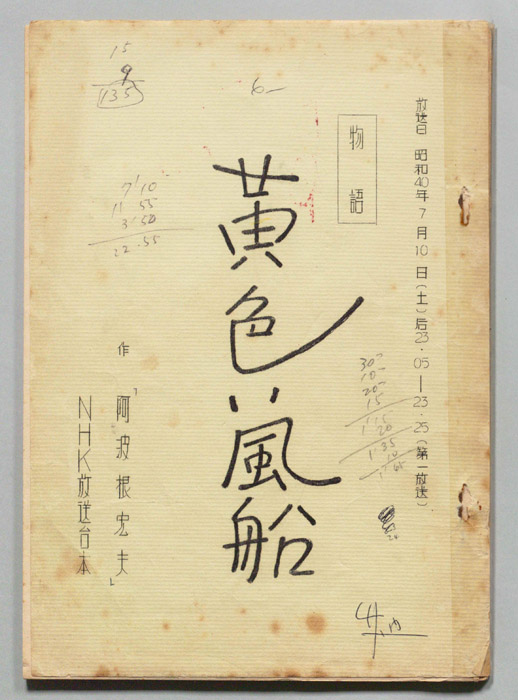 放送日 昭和40年7月10日(土)后23・05―23・25(第一放送)
物語
黄色い風船
作 阿波根宏夫
NHK放送台本
15
9
135
6-
7'10
11 55
3'50
22.55
30-
10-
20-
15